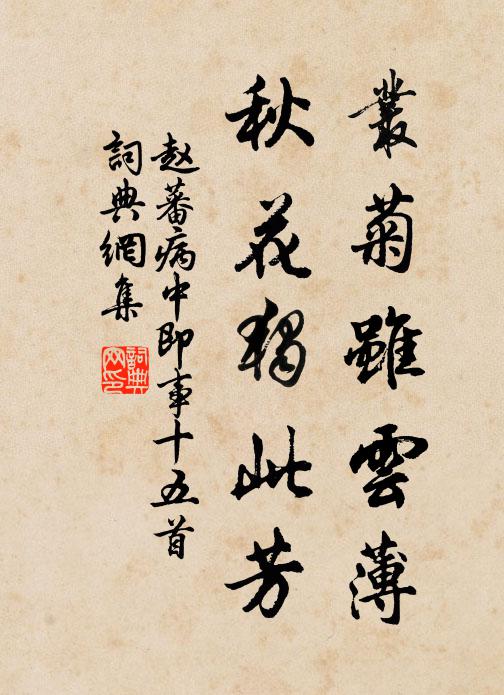 叢菊雖雲薄
秋花獨此芳
赵蕃病中即事十五首
詞典網集
詞典网印